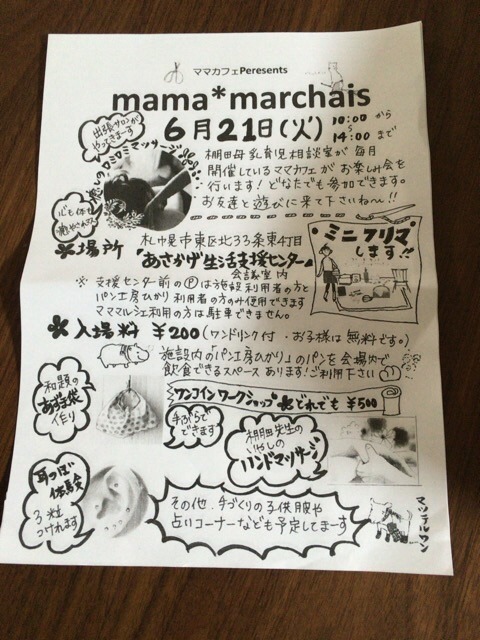 ママカフェPeresents
mama*marchais
6月21日(火)
10:00 から
14:00 まで
出張サロンが
やってきまーす
ロミロミマッサージ
心も体も
癒やされて
棚田母乳育児相談室が毎月
開催しているママカフェがお楽しみ会を
行います!どなたでも参加できます。
お友達と遊びに来て下さいね〜!!
*場所 札幌市東区北33条東4丁目
「あさかげ生活支援センター」
会議室内
※支援センター前のⓅは施設利用者の方と
パン工房ひかり利用者の方のみ使用できます
マママルシェ利用の方は駐車できません。
ミニフリマ
します!!
*入場料 ¥200(ワンドリンク付・お子様は無料です。)
施設内の「パン工房ひかり」のパンを会場内で
飲食できるスペースあります!ご利用下さい
ワンコインワークショップ*どれでも ¥500
和題の
あずま袋
作り
手ぶらで
できます
棚田先生の
いやしの
ハンドマッサージ
耳つぼ
体験
3粒
つけれます
その他、手づくりの子供服や
占いコーナーなども予定してまーす
マッテルワン